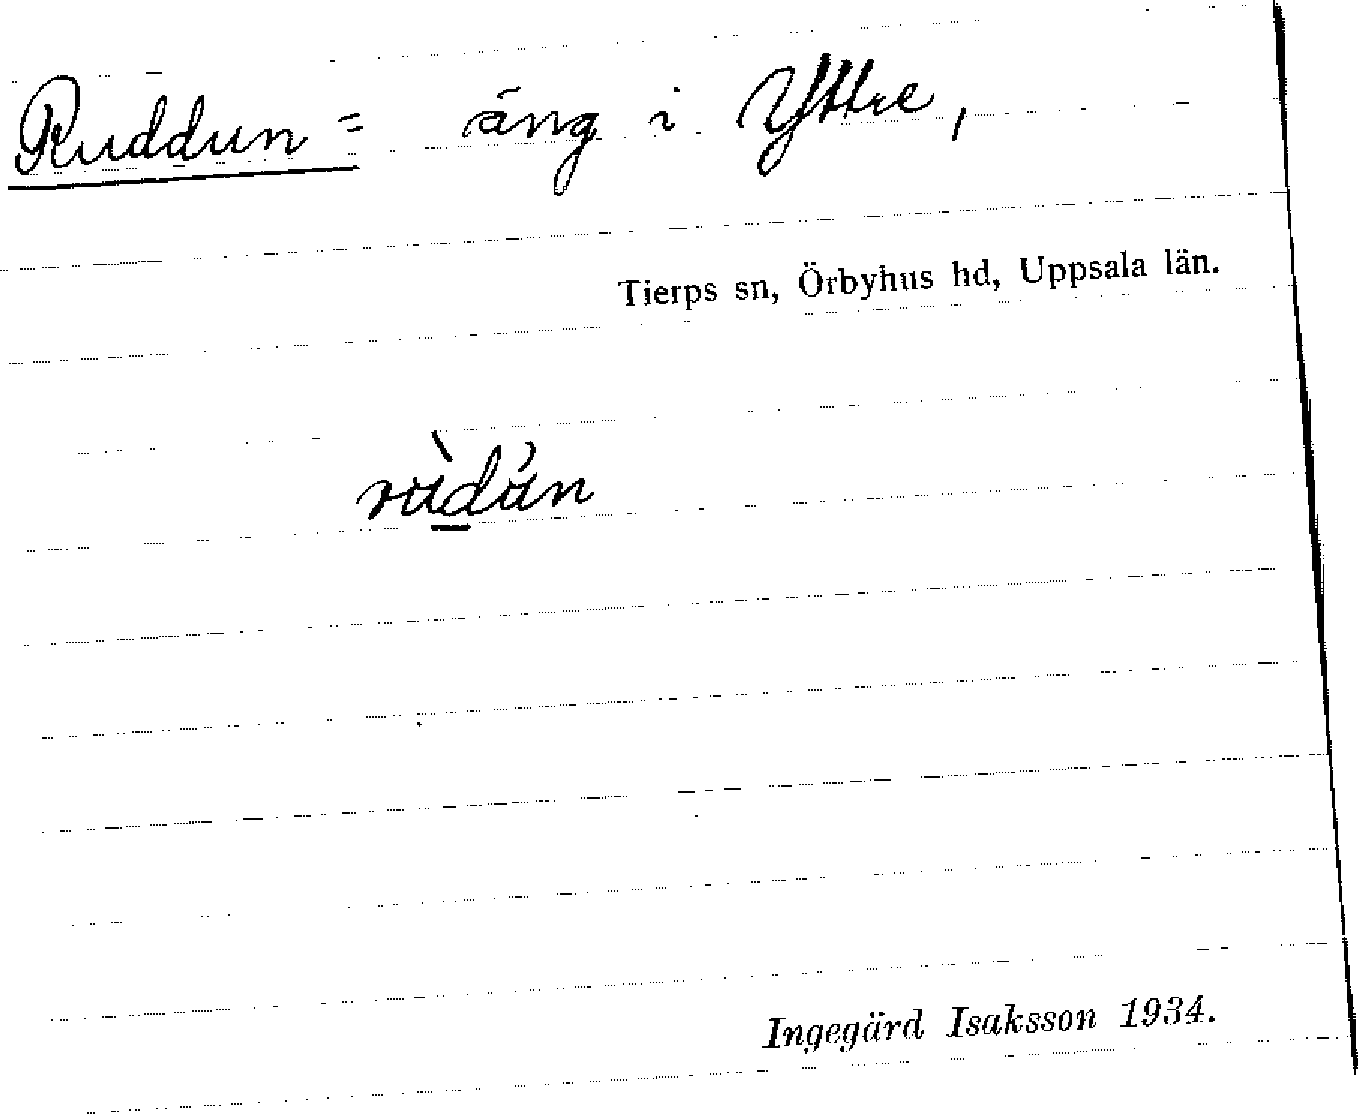 Ruddun = äng i Yttre,
Tierps sn, Örbyhus hd, Uppsala län.
Ingegärd Isaksson 1934.